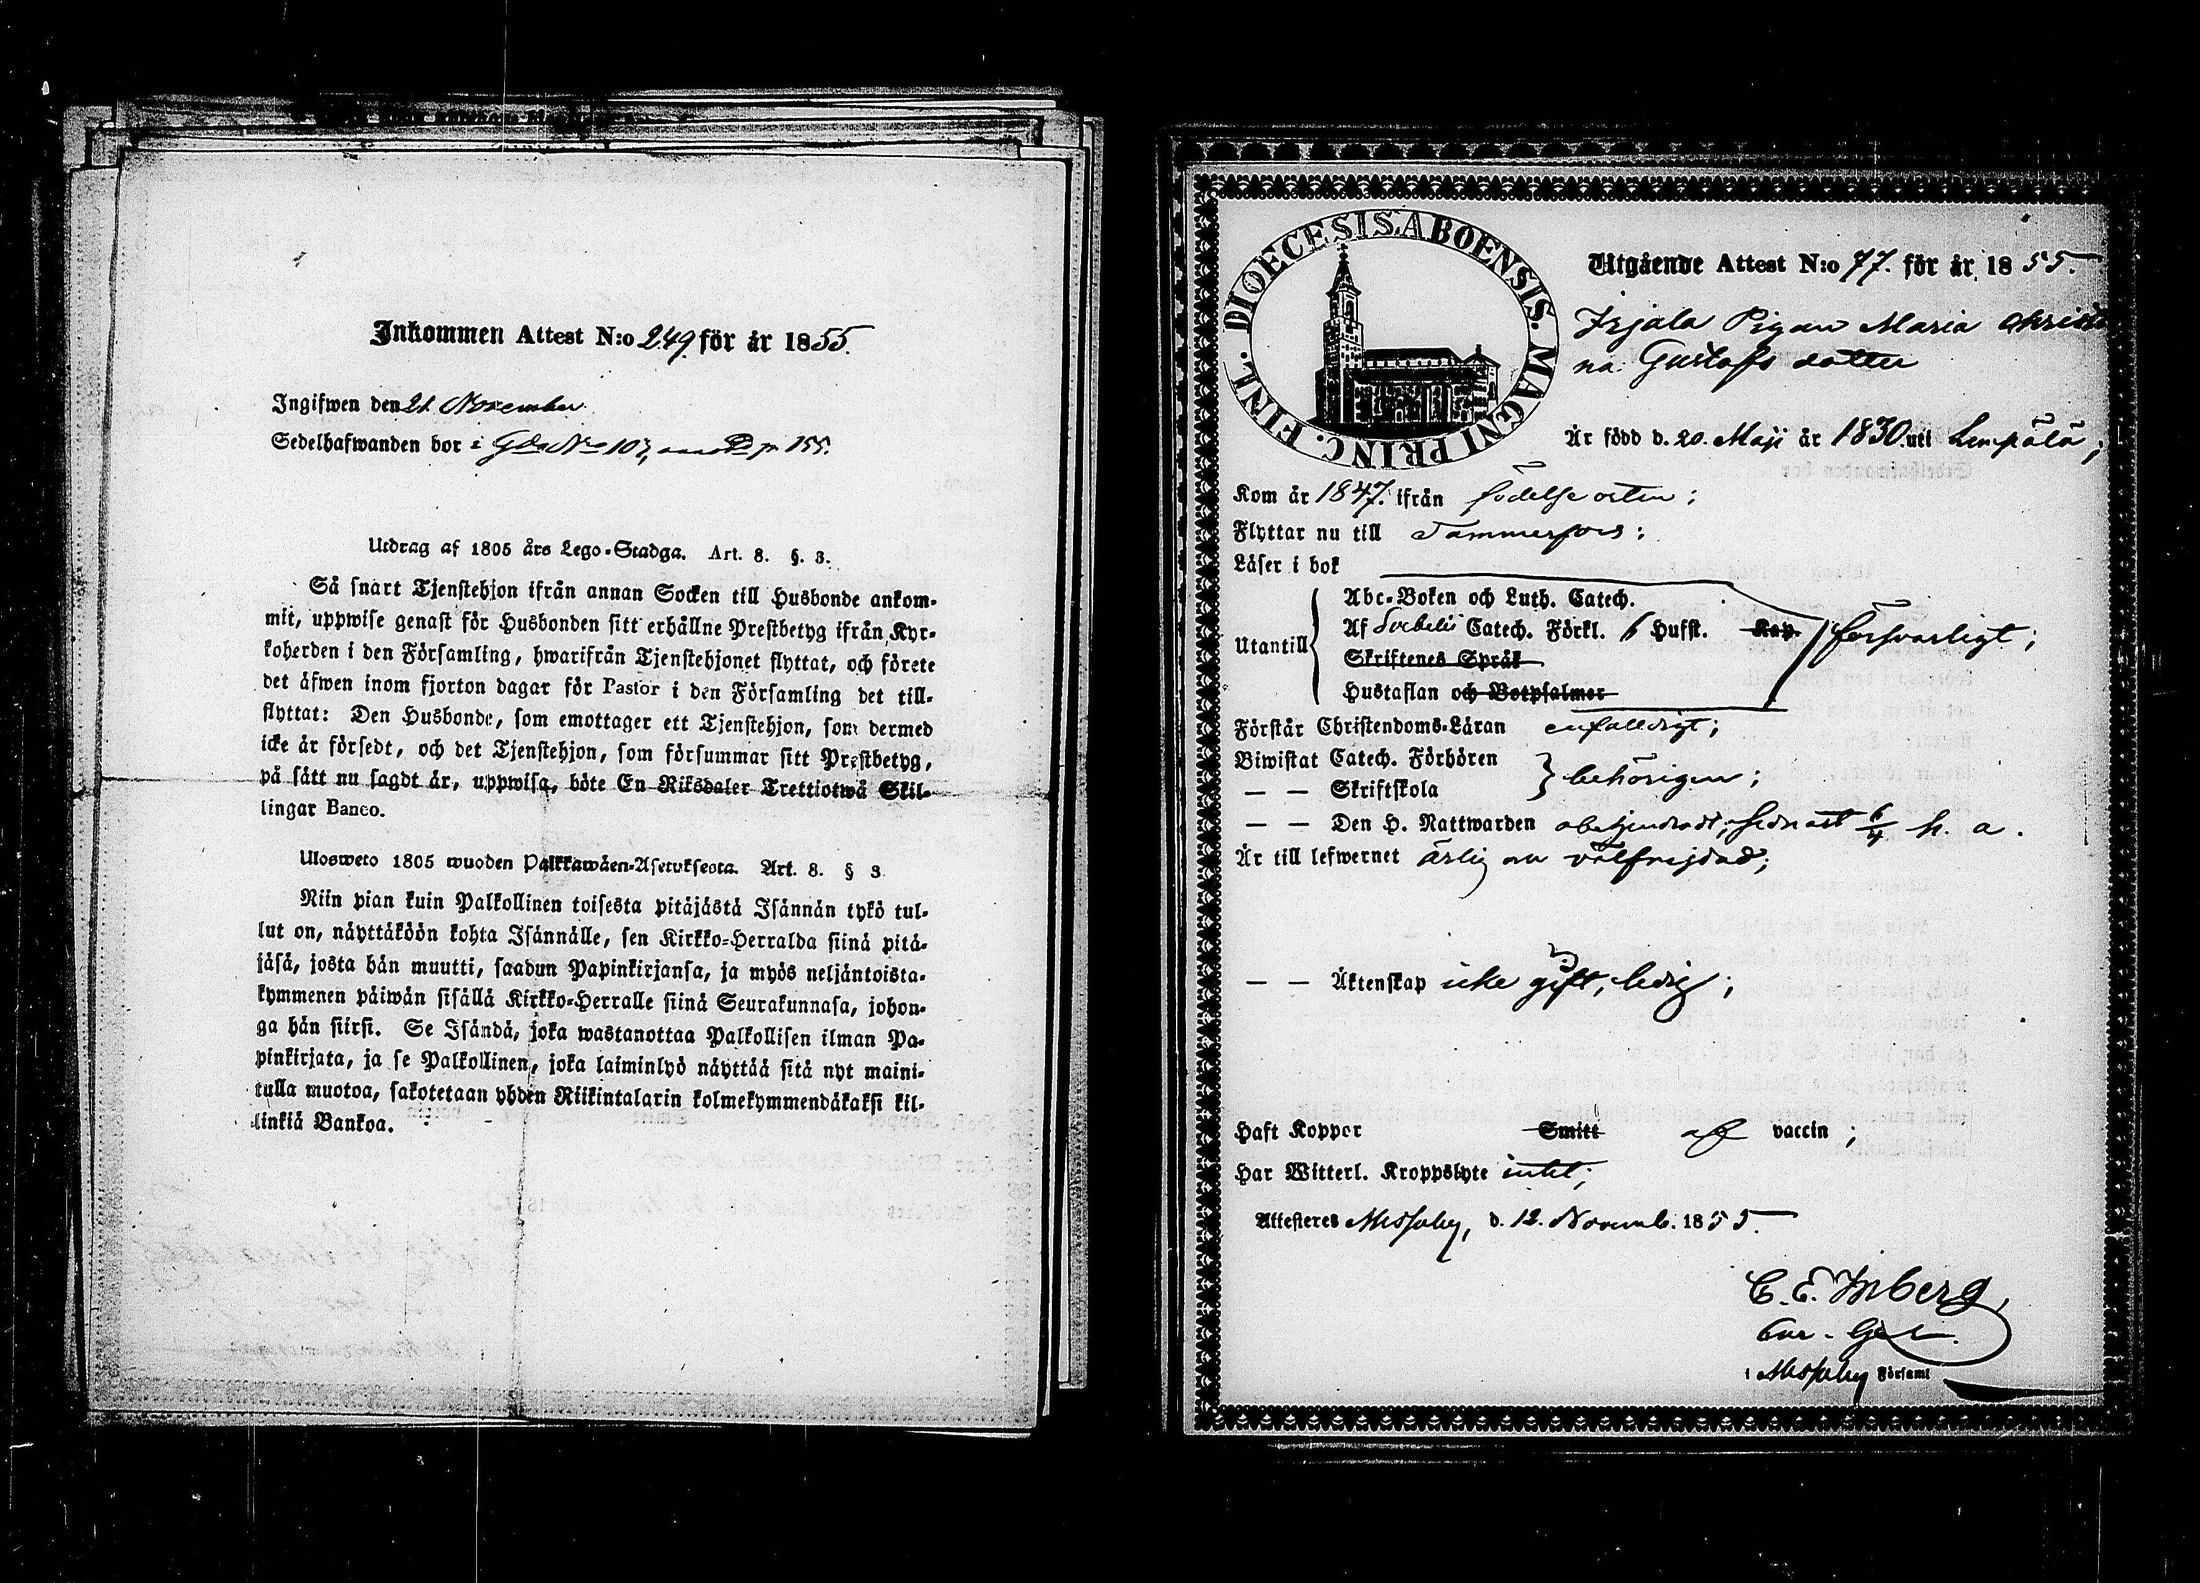 Inkommen Attest N:o 249 för år 1855.
Ingifwen den 21 November
Sedelhafwanden bor i Gården No 107, p. 155.
Utdrag af 1805 års Lego-Stadga. Art. 8. §. 3.
Så snart Tjenstehjon ifrån annan Socken till Husbonde ankom-
mit, uppwise genast för Husbonden sitt erhållne Prestbetyg ifrån Kyr-
koherden i den Församling, hwarifrån Tjenstehjonet flyttat, och förete
det äfwen inom fjorton dagar för Pastor i den Församling det till-
flyttat: Den Husbonde, som emottager ett Tjenstehjon, som dermed
icke är försedt, och det Tjenstehjon, som försummar sitt Prestbetyg,
på sätt nu sagdt är, uppwisa, böte En Riksdaler Trettiotwå Skil-
lingar Banco.
Ulosweto 1805 wuoden Palkkawäen-Asetuksesta. Art. 8. § 3
Niin pian kuin Palkollinen toisesta pitäjästä Isännän tykö tul-
lut on, näyttäköön kohta Isännälle, sen Kirkko-Herralda siinä pitä-
jäsä, josta hän muutti, saadun Papinkirjansa, ja myös neljäntoista-
kymmenen päiwän sisällä Kirkko-Herralle siinä Seurakunnasa, johon-
ga hän siirsi. Se Isändä, joka wastanottaa Palkollisen ilman Pa-
pinkirjata, ja se Palkollinen, joka laiminlyö näyttää sitä nyt maini-
tulla muotoa, sakotetaan yhden Riikintalarin kolmekymmendäkaksi kil-
linkiä Bankoa.
DIOECESIS ABOENSIS. MAGNI PRINC. FINL.
Utgående Attest N:o 77. för år 1855.
Irjala Pigan Maria Christi
na Gustafs dotter
Är född d. 20. Maji år 1830 uti Lempälä;
Kom år 1847. ifrån födelse orten;
Flyttar nu till Tammerfors;
Läser i bok
Abc-Boken och Luth. Catech.
Utantill Af Svebelii Catech. Förkl. 6 Hufst. Kap. försvarligt;
Skriftenes Språk
Hustaflan och Botpsalmer
Förstår Christendoms-Läran enfalldigt;
Biwistat Catech. Förhören
— — Skriftskola behörigen;
— — Den H. Nattwarden obehindradt, sednast 6/4 h. a.
Är till lefwernet ärlig och välfrejdad;
— — Äktenskap icke gift, ledig;
Haft Koppor Smitt af vaccin;
Har Witterl. Kroppslyte intet;
Attesteres Messuby, d. 12. Novemb. 1855.
C. E. Inberg,
i Messuby Församl